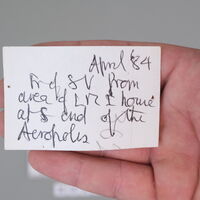 April '84
Frd SV from
area of LM I house
at S end of the
Acropolis